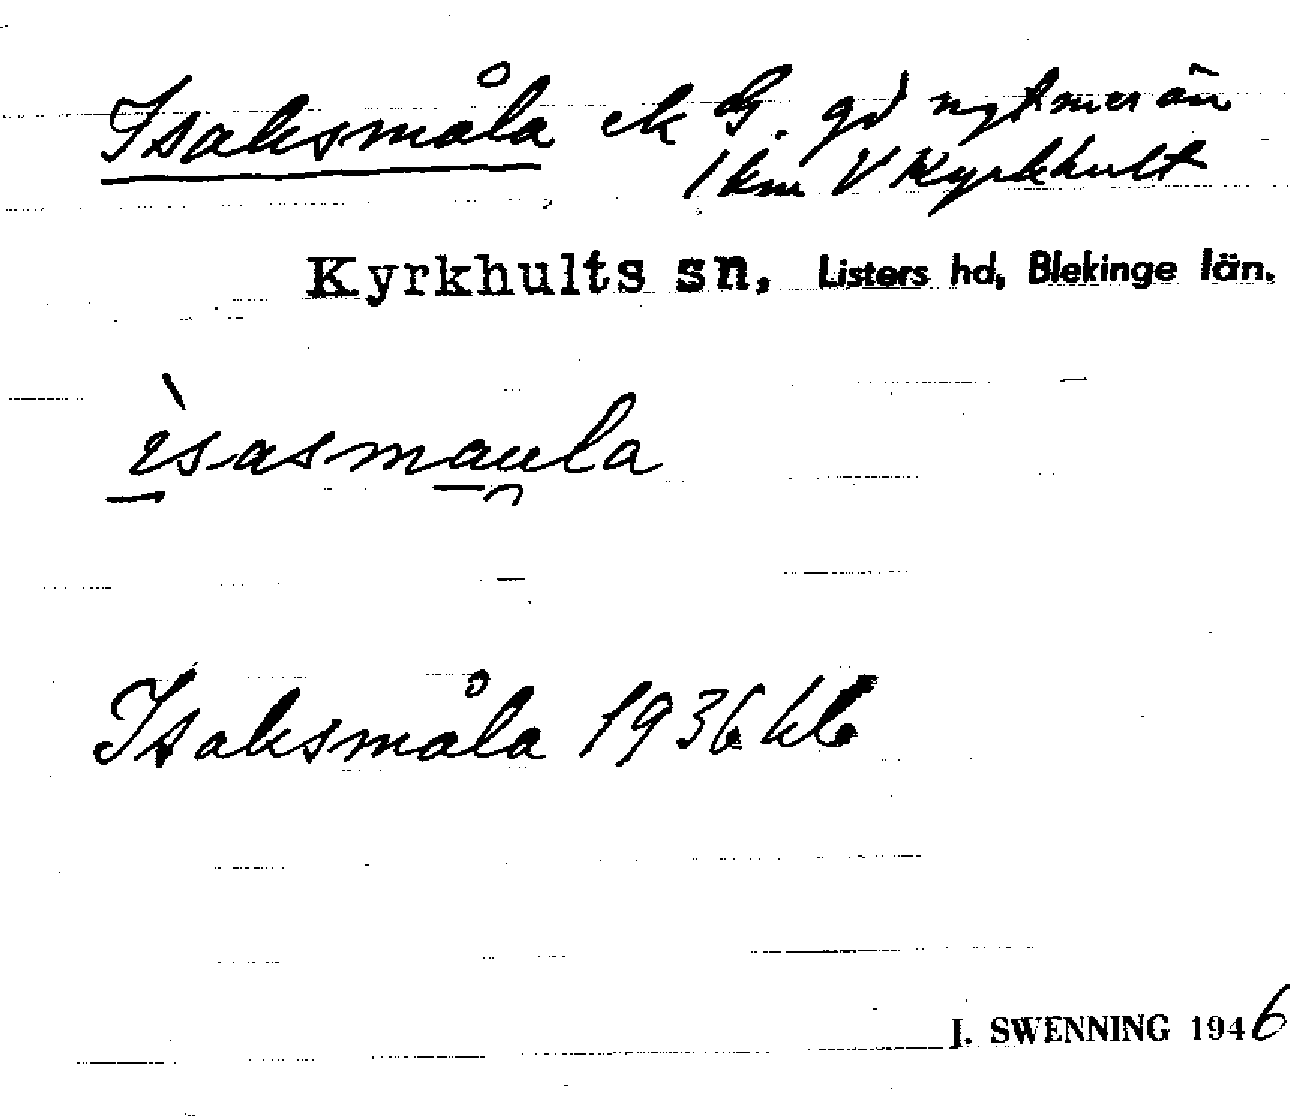 Isaksmåla ek G. gd ngt mer än
1 km V Kyrkhult
Kyrkhults sn, Listers hd, Blekinge län.
ìsasmaula
Isaksmåla 1936 kb
J. SWENNING 1946